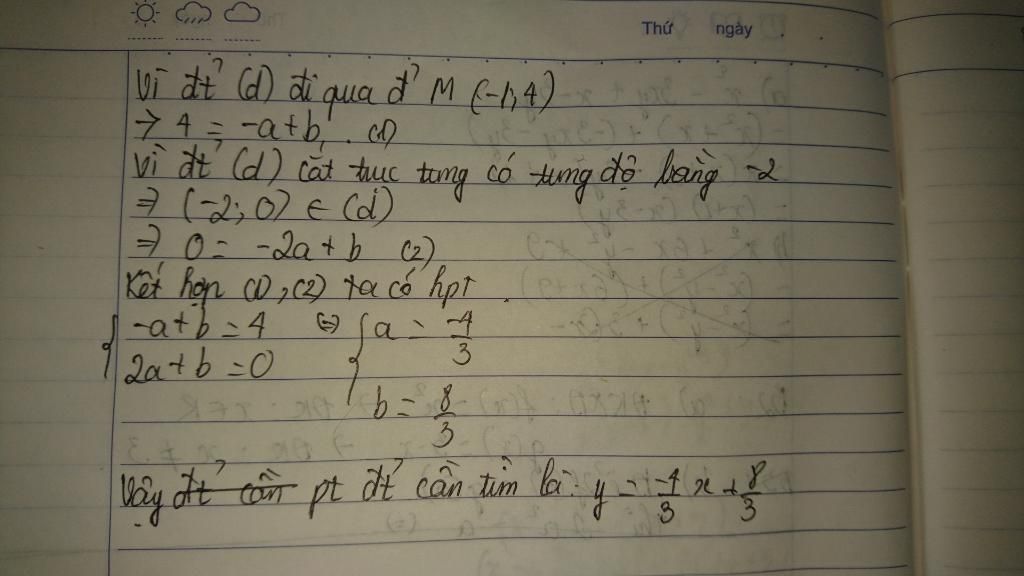 Thứ ngày
Vì đt² (d) đi qua đ² M (-1; 4)
→ 4 = -a+b, (1)
Vì đt² (d) cắt trục tung có tung độ bằng -2
⇒ (-2; 0) ∈ (d)
⇒ 0 = -2a + b (2)
Kết hợp (1), (2) ta có hpt
{ -a+b = 4 ⇔ { a = -4/3
2a+b = 0
b = 8/3
Vậy đt² cần pt đt² cần tìm là: y = -4/3 x + 8/3